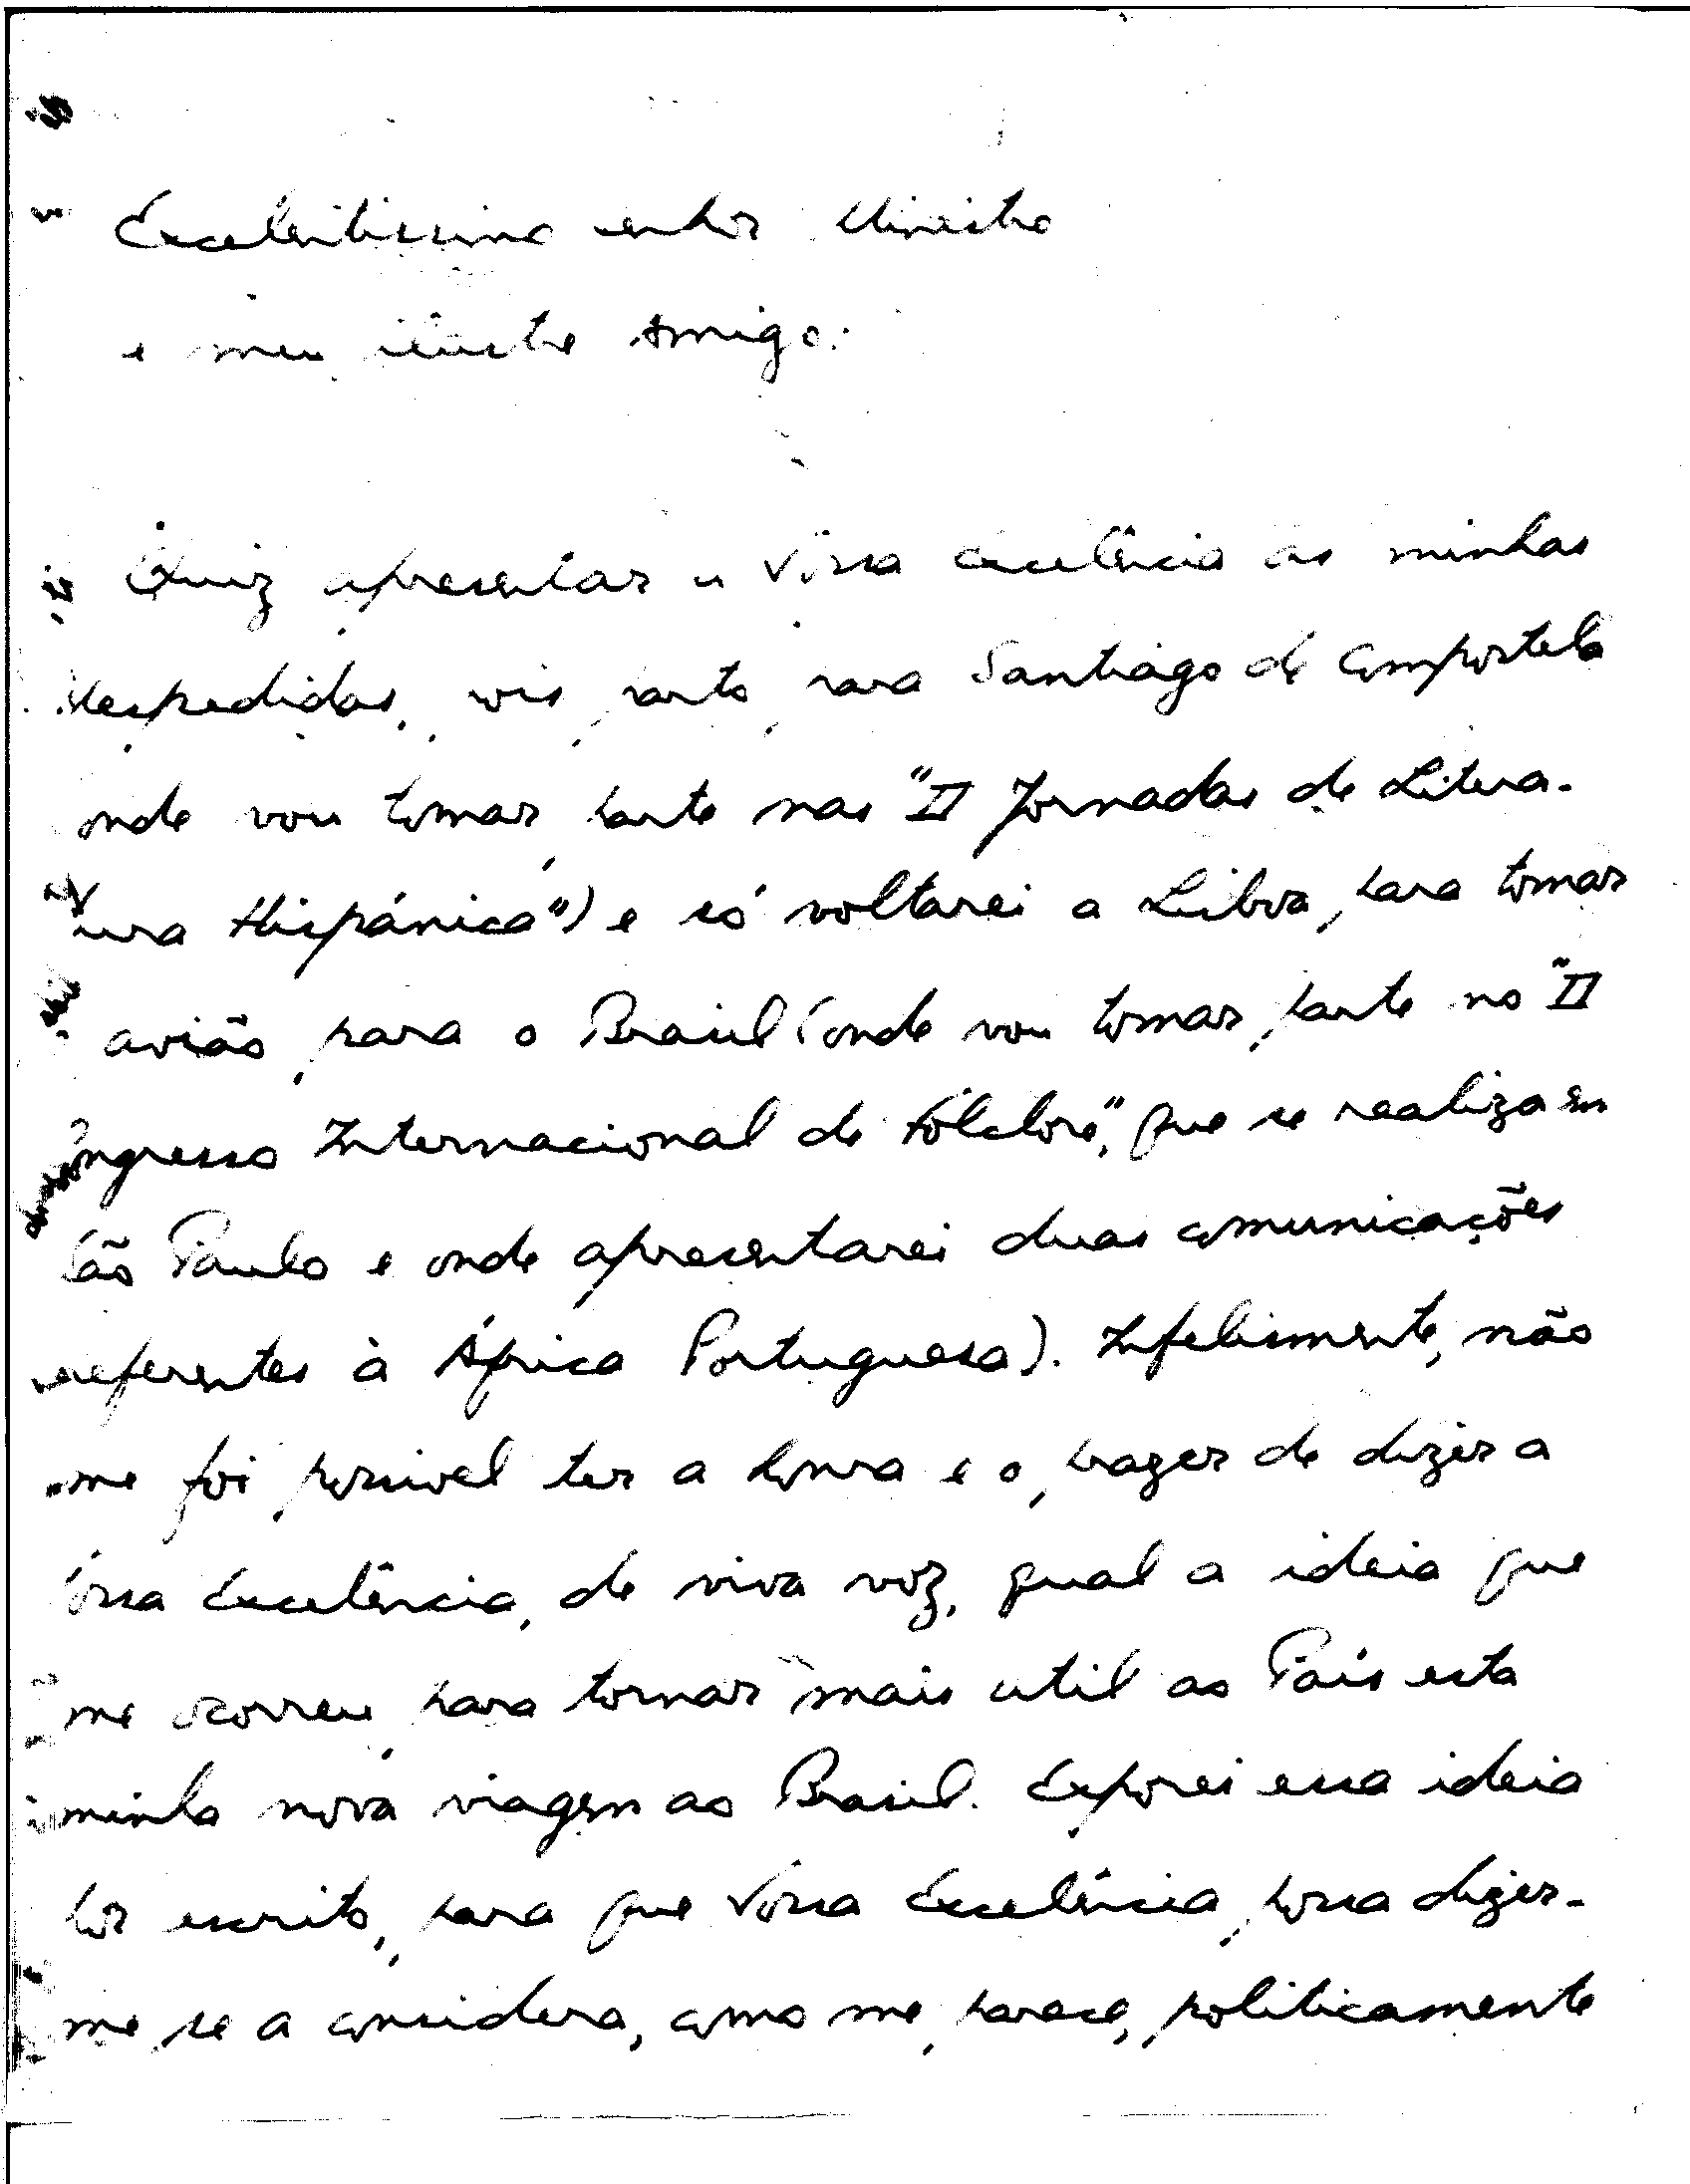 Excelentissimo senhor Ministro
e meu ilustre Amigo:
Quiz apresentar a Vossa Excelência as minhas
despedidas, pois parto para Santiago de Compostela
onde vou tomar parte nas "II Jornadas de Litera-
tura Hispánica") e só voltarei a Lisboa, para tomar
o avião para o Brasil (onde vou tomar parte no "II
Congresso Internacional de Folclore", que se realiza em
São Paulo e onde apresentarei duas comunicações
referentes à África Portuguesa). Infelismente, não
me foi possivel ter a honra e o prazer de dizer a
Vossa Excelência, de viva voz, qual a ideia que
me ocorreu para tornar mais util ao País esta
minha nova viagem ao Brasil. Exporei essa ideia
por escrito, para que Vossa Excelência possa dizer-
me se a considera, como me parece, politicamente